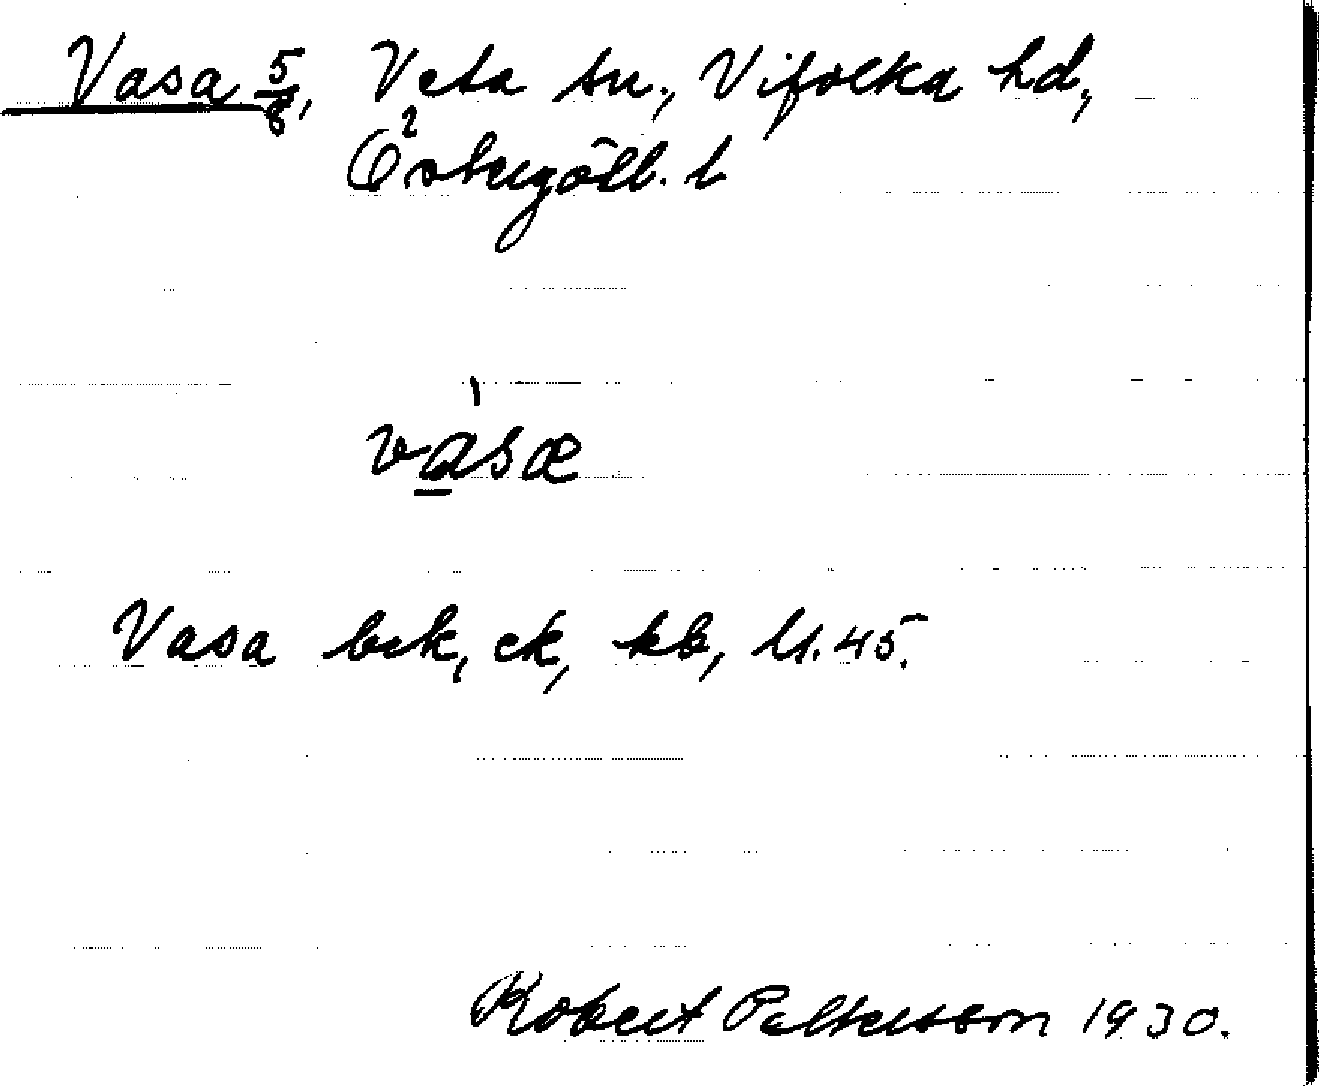 Vasa 5/8, Veta sn., Vifolka hd,
Östergötl. l
vasæ
Vasa bek, ek, kb, U. 45.
Robert Pettersson 1930.